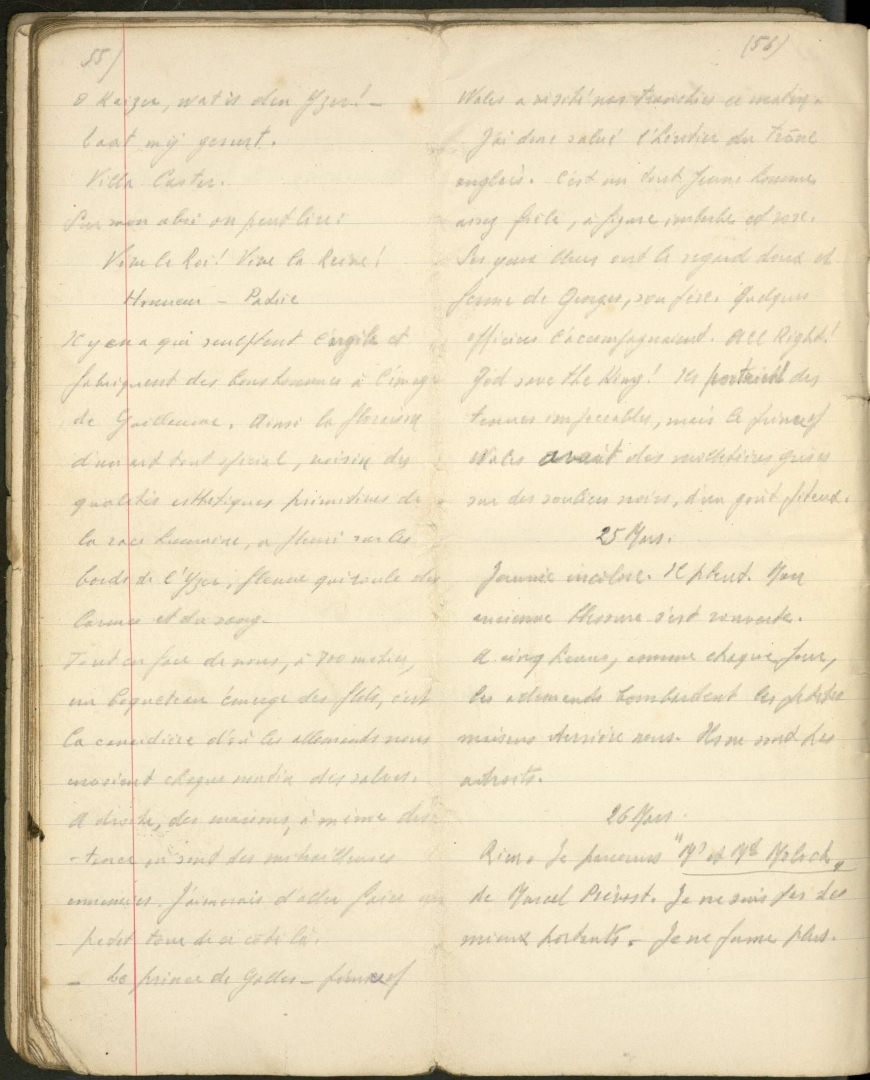 55)
O Keizer, wat is den Yzer! –
Laat mij gerust.
Villa Castor.
Sur mon abri on peut lire:
Vive le Roi! Vive la Reine!
Honneur – Patrie
Il y en a qui sculptent l'argile et
fabriquent des bonshommes à l'image
de Guillaume. Ainsi la floraison
d'un art tout spécial, voisin des
qualités esthétiques primitives de
la race humaine, a fleuri sur les
bords de l'Yzer, fleuve qui roule des
larmes et du sang.
Tout en face de nous, à 700 mètres,
un boqueteau émerge des flots, c'est
la d'où les allemands nous
envoient chaque matin des salves.
A droite, des maisons, à même dis-
-tance où sont des mitrailleuses
ennemies. J'aimerais d'aller faire un
petit tour de ce côté là.
– Le prince de Galles – prince of
(56)
Wales a visité nos tranchées ce matin.
J'ai donc salué l'héritier du trône
anglais. C'est un tout jeune homme
assez frêle, à figure imberbe et rose.
Ses yeux bleus ont le regard doux et
ferme de Georges, son père. Quelques
officiers l'accompagnaient. All Right!
God save the King! Ils portaient des
tenues impeccables, mais le prince of
Wales avait des molletières grises
sur des souliers noirs, d'un goût piteux.
25 Mars.
Journée incolore. Il pleut. Mon
ancienne blessure s'est rouverte.
A cinq heures, comme chaque jour,
les allemands bombardent les petites
maisons derrière nous. Ils ne sont pas
adroits.
26 Mars.
Rien. Je parcours "Mr et Me Moloch"
de Marcel Prévost. Je ne suis pas des
mieux portants. – Je ne fume plus.